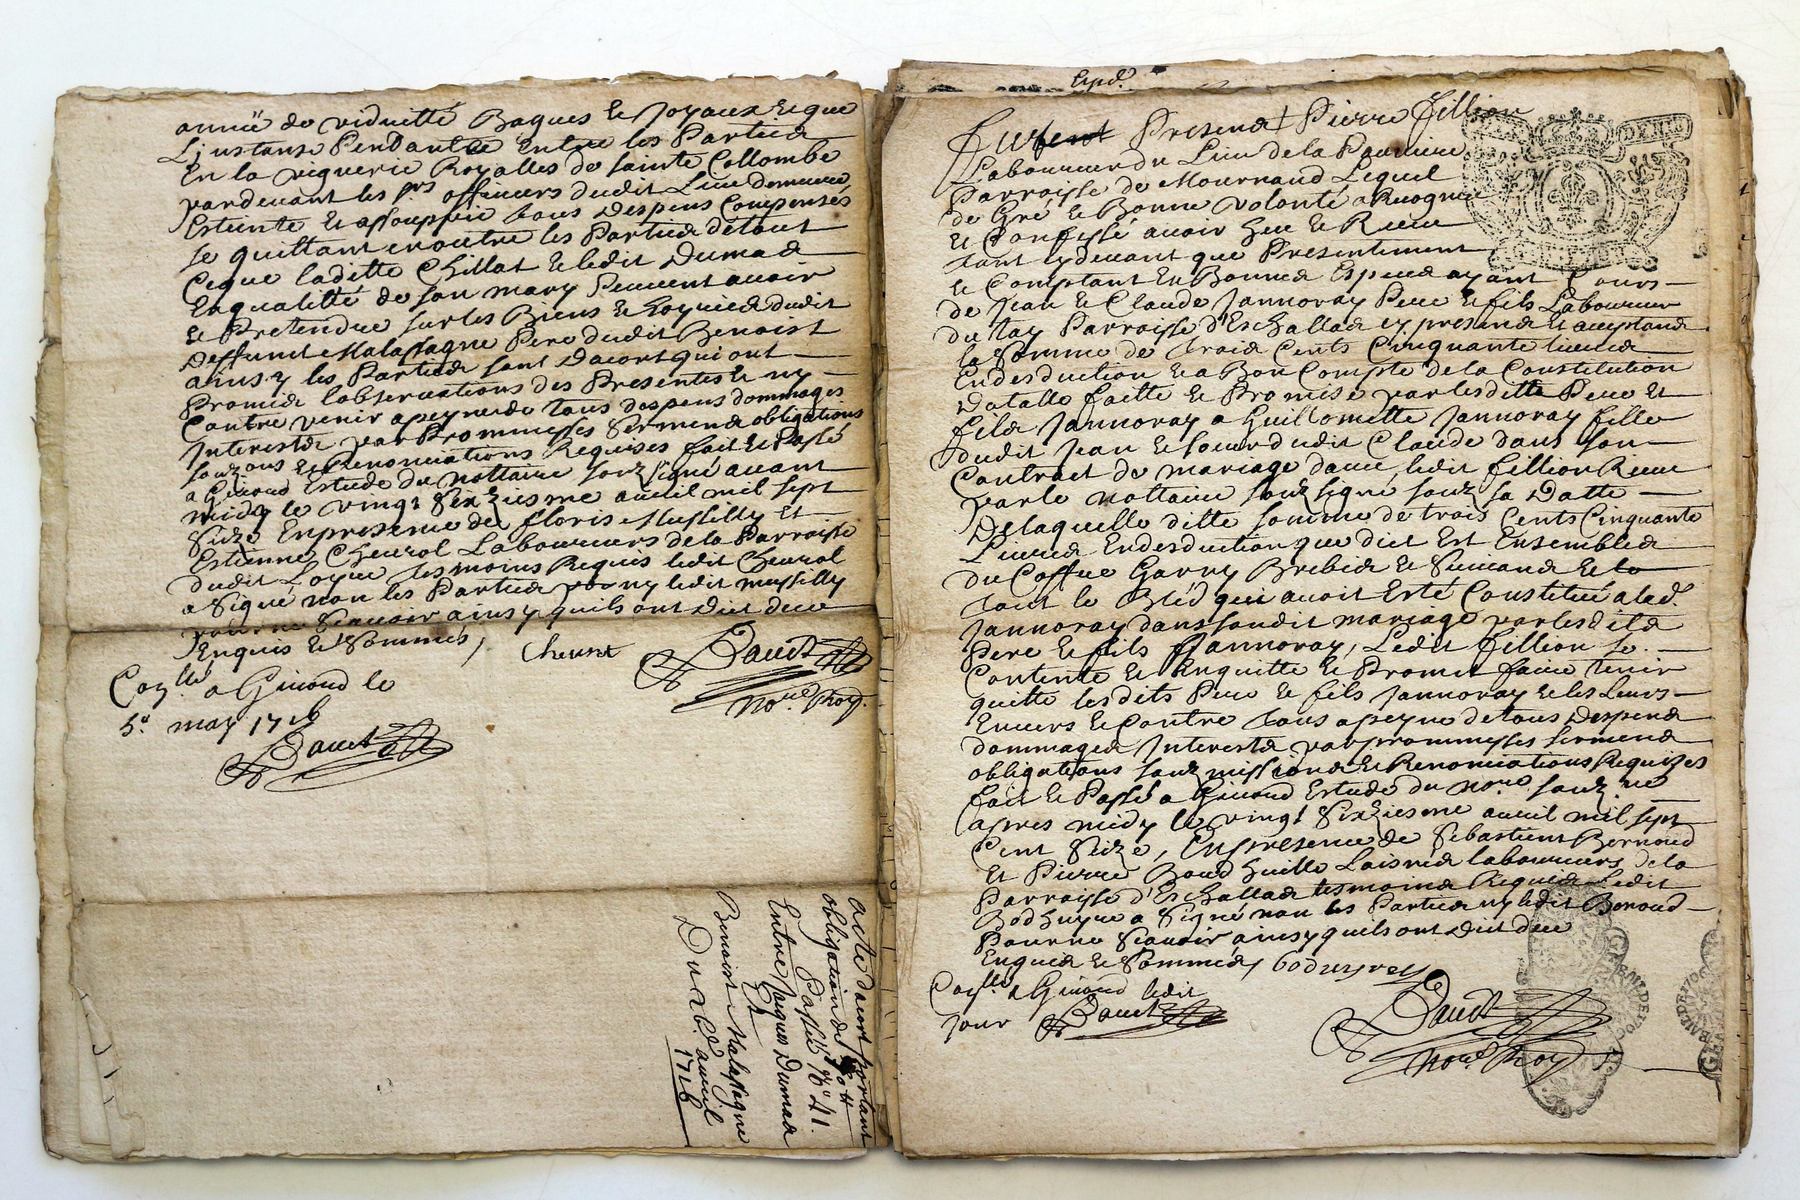 année de viduitté Bagues et Joyaux et que
L'instance Pendantte Entre les Partiea
En la viguerie Royalles de sainte Collombe
pardevant les prs officiers dudit Lieu demeure
Esteinte et assouppie tous Despens Compensés
se quittant en outre les Partiea de tout
Ceque laditte Chillat et ledit Dumaa
Enqualitté de son mary Peuvent avoir
et Pretendre sur les Biens et hoyriea dudit
Deffunct Malassagne Pere dudit Benoist
ainsy les Partiea sont dacort qui ont
Promia lobservations des Presentes et ny
Contre venir apeyne de tous despens dommages
Interestz par Prommesses sermena obligations
et Renonciations Requises fait et Passé
a Givord Estude du nottaire souzsigné avant
midy le vingt Sixziesme avril mil sept
Seize En presence de floris Mussilly Et
Estienne Cheurol Laboureurs de la Parroisse
dudit Loyre tesmoins Requis ledit Cheurol
a Signé non les Partiea ny ledit mussilly
pour ne Scavoir ainsy quils ont Dict dece
Enquis et Sommés, Cheurot
Daudt
no.re Roy.
Con.llé a Givord le
5.e may 1716
Daudt
acte dacort portant
obligation de
Passé N.o 41.
Entre Jaques Dumaa
Et
Benoist Malassagne
Du avril
1716
Expd.
Furent Presena Pierre fillion
Laboureur du Lieu de la
Parroisse de Mournand Lequel
de Gré et Bonne volonté a Recognu
et Confessé avoir heu et Receu
tant cy devant que Presentement
et Comptant En Bonnea Especea ayant Cours
de Jean et Claude Jannoray Pere et fils Laboureur
du Lay Parroisse d'Eschallaa cy presena et acceptana
la Somme de trois Cents Cinquante livrea
En desduction et a Bon Compte de la Constitution
Dotalle faitte et Promise par lesditts Pere et
fila Jannoray a Guillomette Jannoray fille
dudit Jean et soeur dudit Claude dans son
Contract de mariage davec ledit fillion Receu
par le nottaire souzsigné souz sa Datte
De laquelle ditte somme de trois Cents Cinquante
Livrea En desduction que dict Est Ensemblea
du Coffre Garny Brebiea et
tout le Bléd qui avoit Esté Constitué a lad.e
Jannoray dans sondit mariage par lesdita
Pere et fils Jannoray, Ledit fillion se
Contente et Enquitte et Promet faire tenir
quitte lesdits Pere et fils Jannoray et les Leurs
Envers et Contre tous apeyne de tous Despena
dommagea Interesta par prommesses sermena
obligations souzmissiona et Renonciations Requizes
fait et Passé a Givord Estude du no.re souz.né
apres midy le vingt Sixziesme avril mil sept
Cent Seize, En presence de Sebastient Bernoud
Et Pierre Laisnéa laboureurs de la
Parroisse d'Eschallaa tesmoina Requia Ledit
a Signé non les Partiea ny ledit Bernoud
Pour ne Scavoir ainsy quils ont Dict dece
Enquia et Sommés
Con.llé a Givord ledit
Jour Daudt
Daudt
no.re Roy